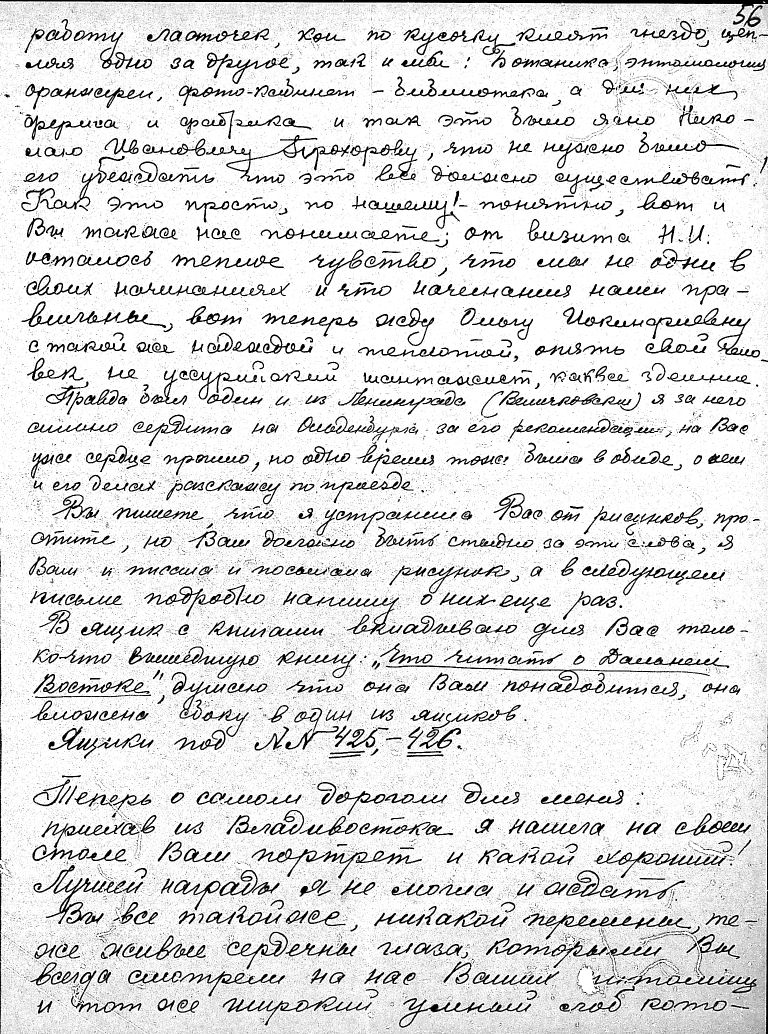 56
работу ласточек, кои по кусочку клеят гнездо, цеп-
ляя одно за другое, так и мы: Ботаника, энтомология
оранжереи, фото-кабинет – библиотека, а для них
ферма и фабрика и так это было ясно Нико-
лаю Ивановичу Прохорову, что не нужно было
его убеждать что это все должно существовать!
Как это просто, по нашему! – понятно, вот и
Вы также нас понимаете; от визита Н.И.
осталось теплое чувство, что мы не одни в
своих начинаниях и что начинания наши пра-
вильны, вот теперь жду Ольгу Иокинфиевну
с такой же надеждой и теплотой, опять свой чело-
век, не уссурийский шантажист, как все здешние.
Правда был один и из Ленинграда (Величковский) я за него
сильно сердита на Ольденбурга за его рекомендации, на Вас
уже сердце прошло, но одно время тоже была в обиде, о нем
и его делах расскажу по приезде.
Вы пишете, что я устранила Вас от рисунков, про-
стите, но Вам должно быть стыдно за эти слова, я
Вам и писала и посылала рисунок, а в следующем
письме подробно напишу о них еще раз.
В ящик с книгами вкладываю для Вас толь-
ко-что вышедшую книгу: „Что читать о Дальнем
Востоке", думаю что она Вам понадобится, она
вложена сбоку в один из ящиков.
Ящики под NN 425, – 426.
Теперь о самом дорогом для меня:
приехав из Владивостока я нашла на своем
столе Ваш портрет и какой хороший!
Лучшей награды я не могла и ждать.
Вы все такой же, никакой перемены, те-
же живые сердечны глаза, которыми Вы
всегда смотрели на нас Ваших питомиц
и тот же широкий умный лоб кото-